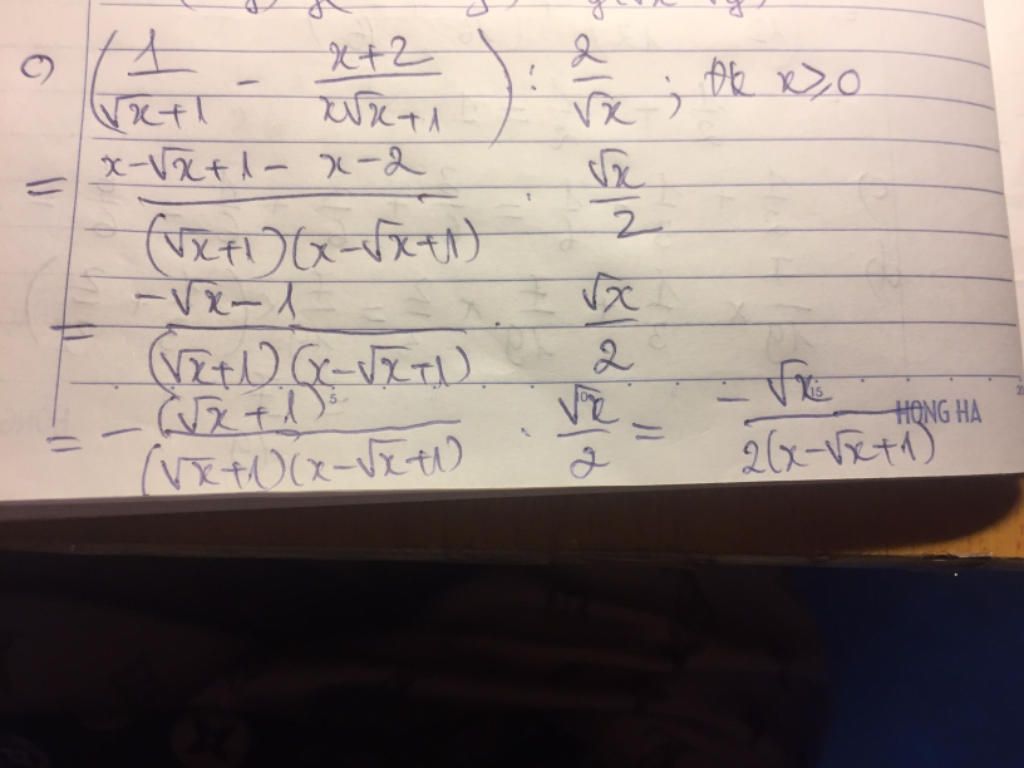 c) (1/(√x+1) - (x+2)/(x√x+1)) : 2/√x ; đk x⩾0
= (x-√x+1- x-2)/((√x+1)(x-√x+1)) . √x/2
= (-√x-1)/((√x+1)(x-√x+1)) . √x/2
= -(√x+1)/((√x+1)(x-√x+1)) . √x/2 = -√x/(2(x-√x+1))
5 10 15
HONG HA